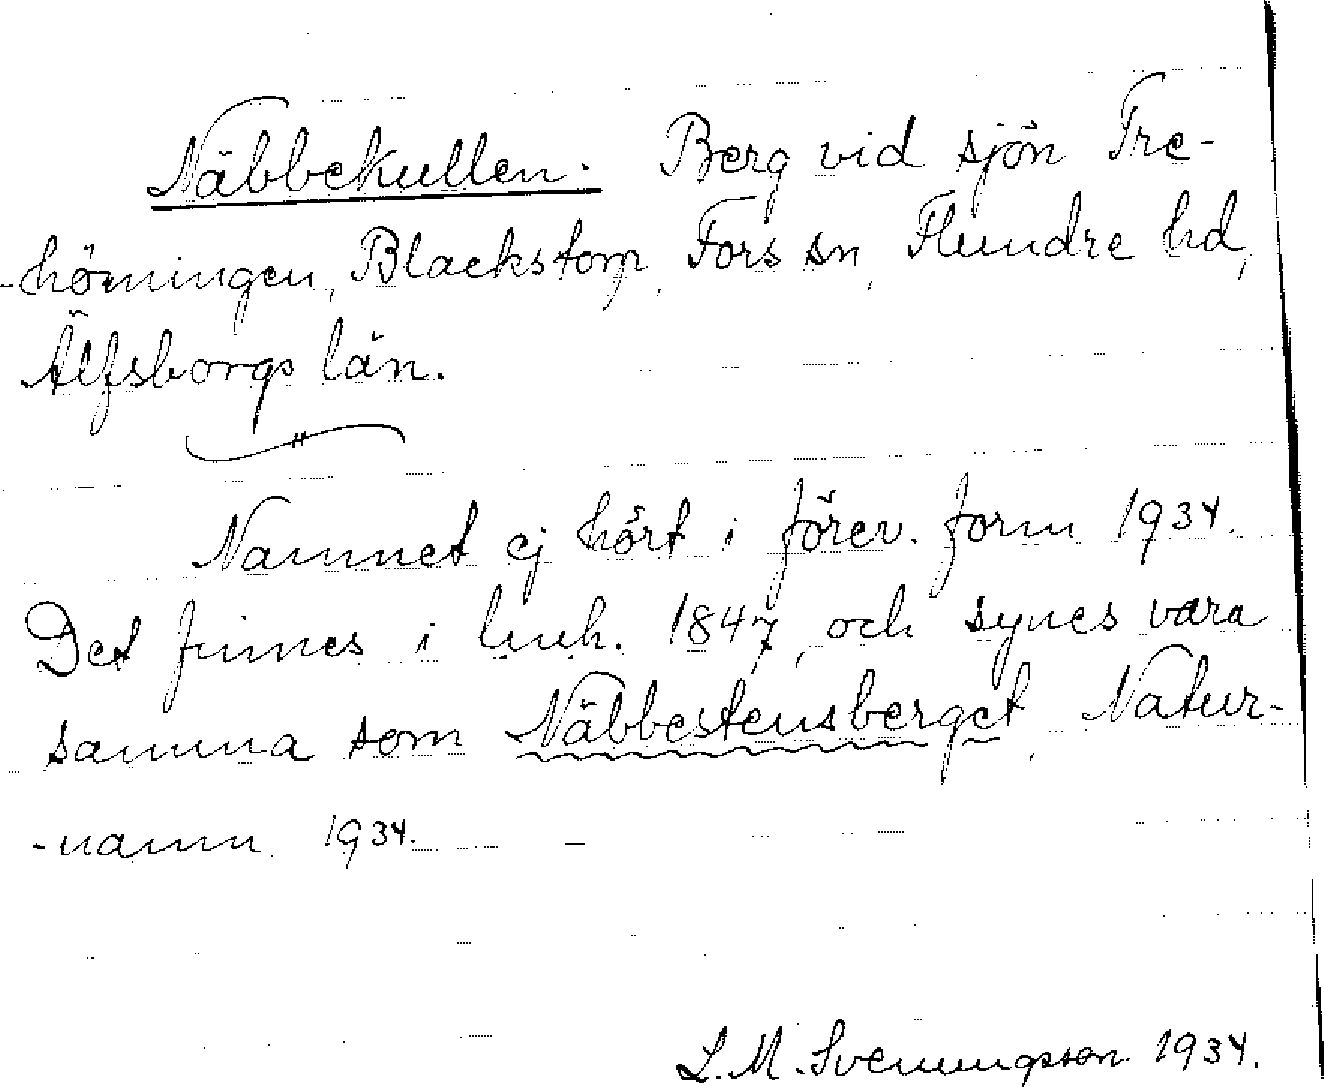 Näbbekullen. Berg vid sjön Tre-
-hörningen, Blackstorp, Fors sn, Flundre hd,
Älfsborgs län.
Namnet ej hört i förev. form 1934.
Det finnes i lmh. 1847, och synes vara
samma som Näbbestensberget, Natur-
-namn 1934.
L. M. Svenungsson 1934.